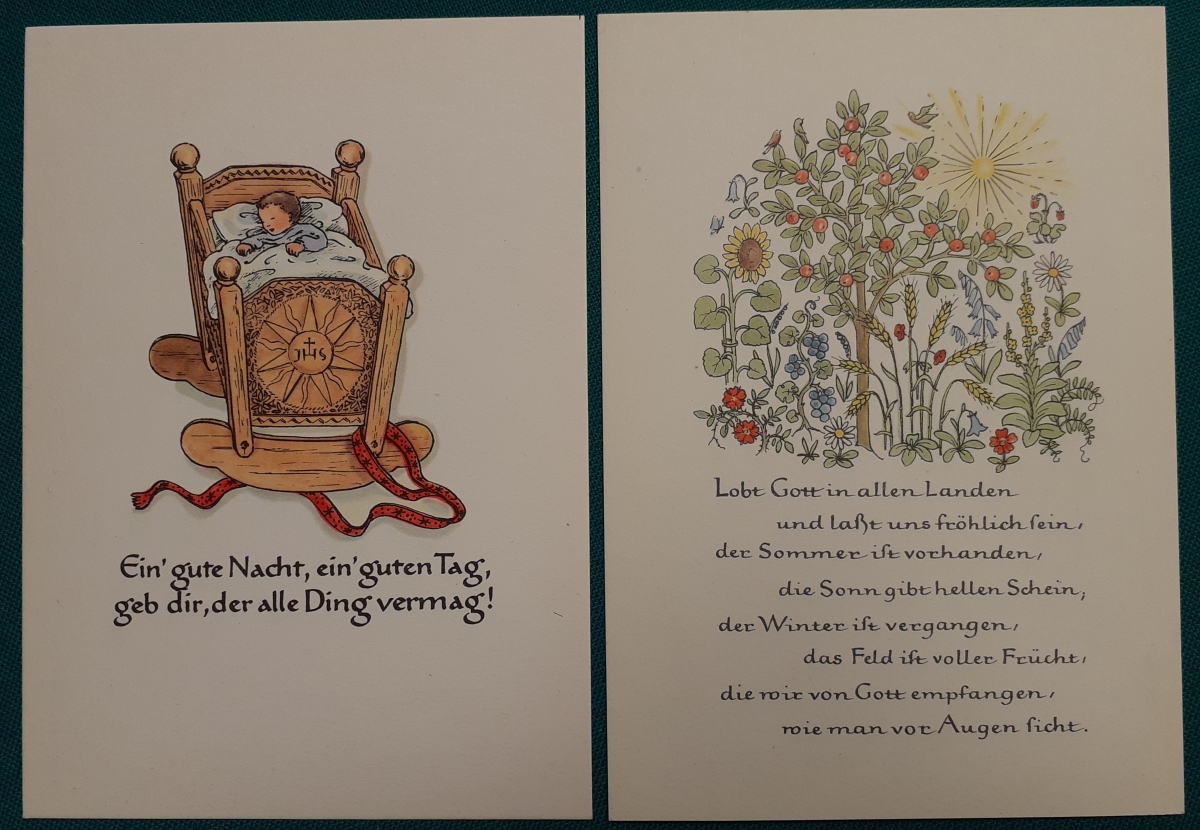 JHS
Ein' gute Nacht, ein' guten Tag,
geb dir, der alle Ding vermag!
Lobt Gott in allen Landen
und laßt uns fröhlich ſein,
der Sommer iſt vorhanden,
die Sonn gibt hellen Schein;
der Winter iſt vergangen,
das Feld iſt voller Frücht,
die wir von Gott empfangen,
wie man vor Augen ſicht.